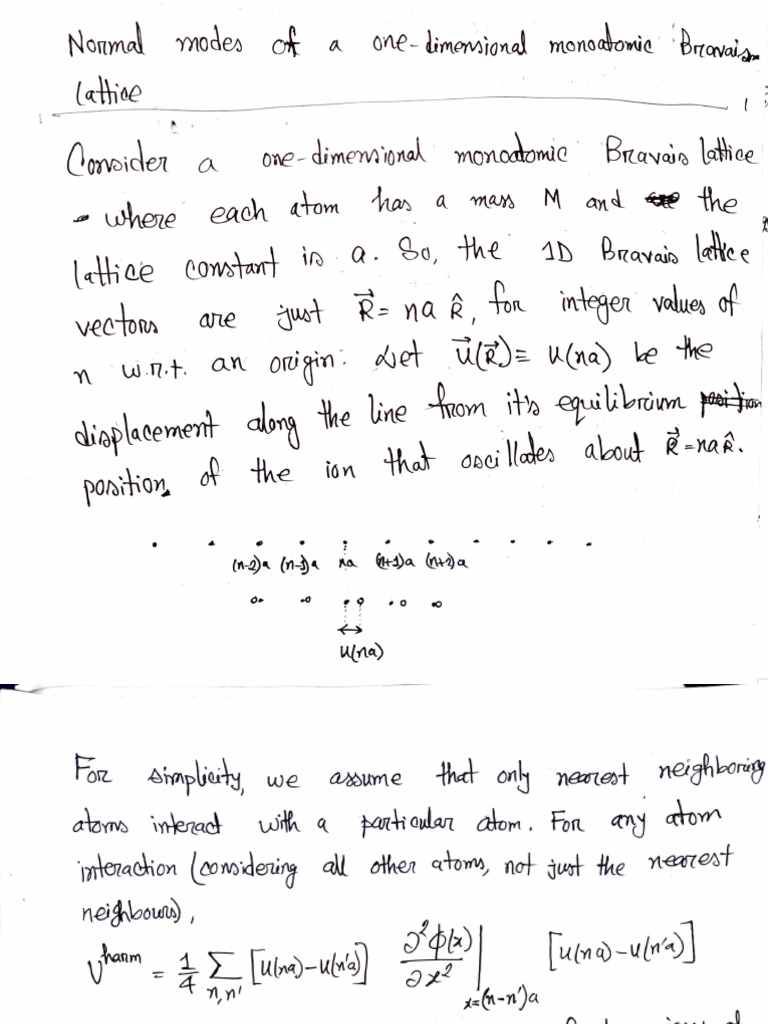 Normal modes of a one-dimensional monoatomic Bravais
lattice
Consider a one-dimensional monoatomic Bravais lattice
where each atom has a mass M and the
lattice constant is a. So, the 1D Bravais lattice
vectors are just R⃗ = na R̂, for integer values of
n w.r.t. an origin. Let u⃗(R⃗) ≡ u(na) be the
displacement along the line from it's equilibrium
position of the ion that oscillates about R⃗ = na R̂.
(n-2)a (n-1)a na (n+1)a (n+2)a
u(na)
For simplicity, we assume that only nearest neighboring
atoms interact with a particular atom. For any atom
interaction (considering all other atoms, not just the nearest
neighbours),
U^harm = 1/4 ∑_{n,n'} [u(na) - u(n'a)] ∂²φ(x)/∂x² |_{x=(n-n')a} [u(na) - u(n'a)]